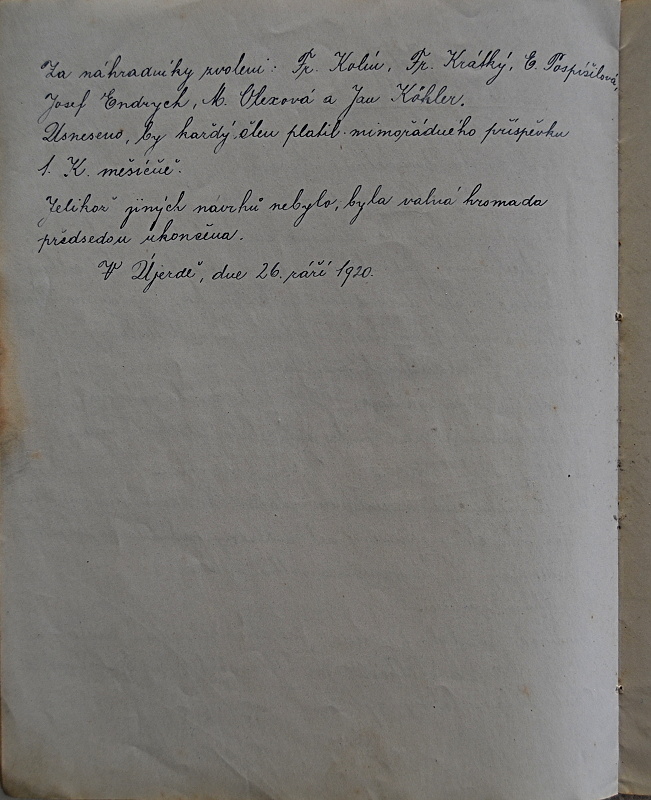 Za náhradníky zvoleni: Fr. Kolín, Fr. Krátký, E. Pospíšilová,
Josef Endrych, M. Olexová a Jan Köhler.
Usneseno, by každý člen platil mimořádného příspěvku
1. K. měsíčně.
Jelikož jiných návrhů nebylo, byla valná hromada
předsedou ukončena.
V Újezdě, dne 26. září 1920.